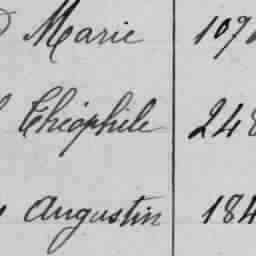 Marie 109
Théophile 248
Augustin 184